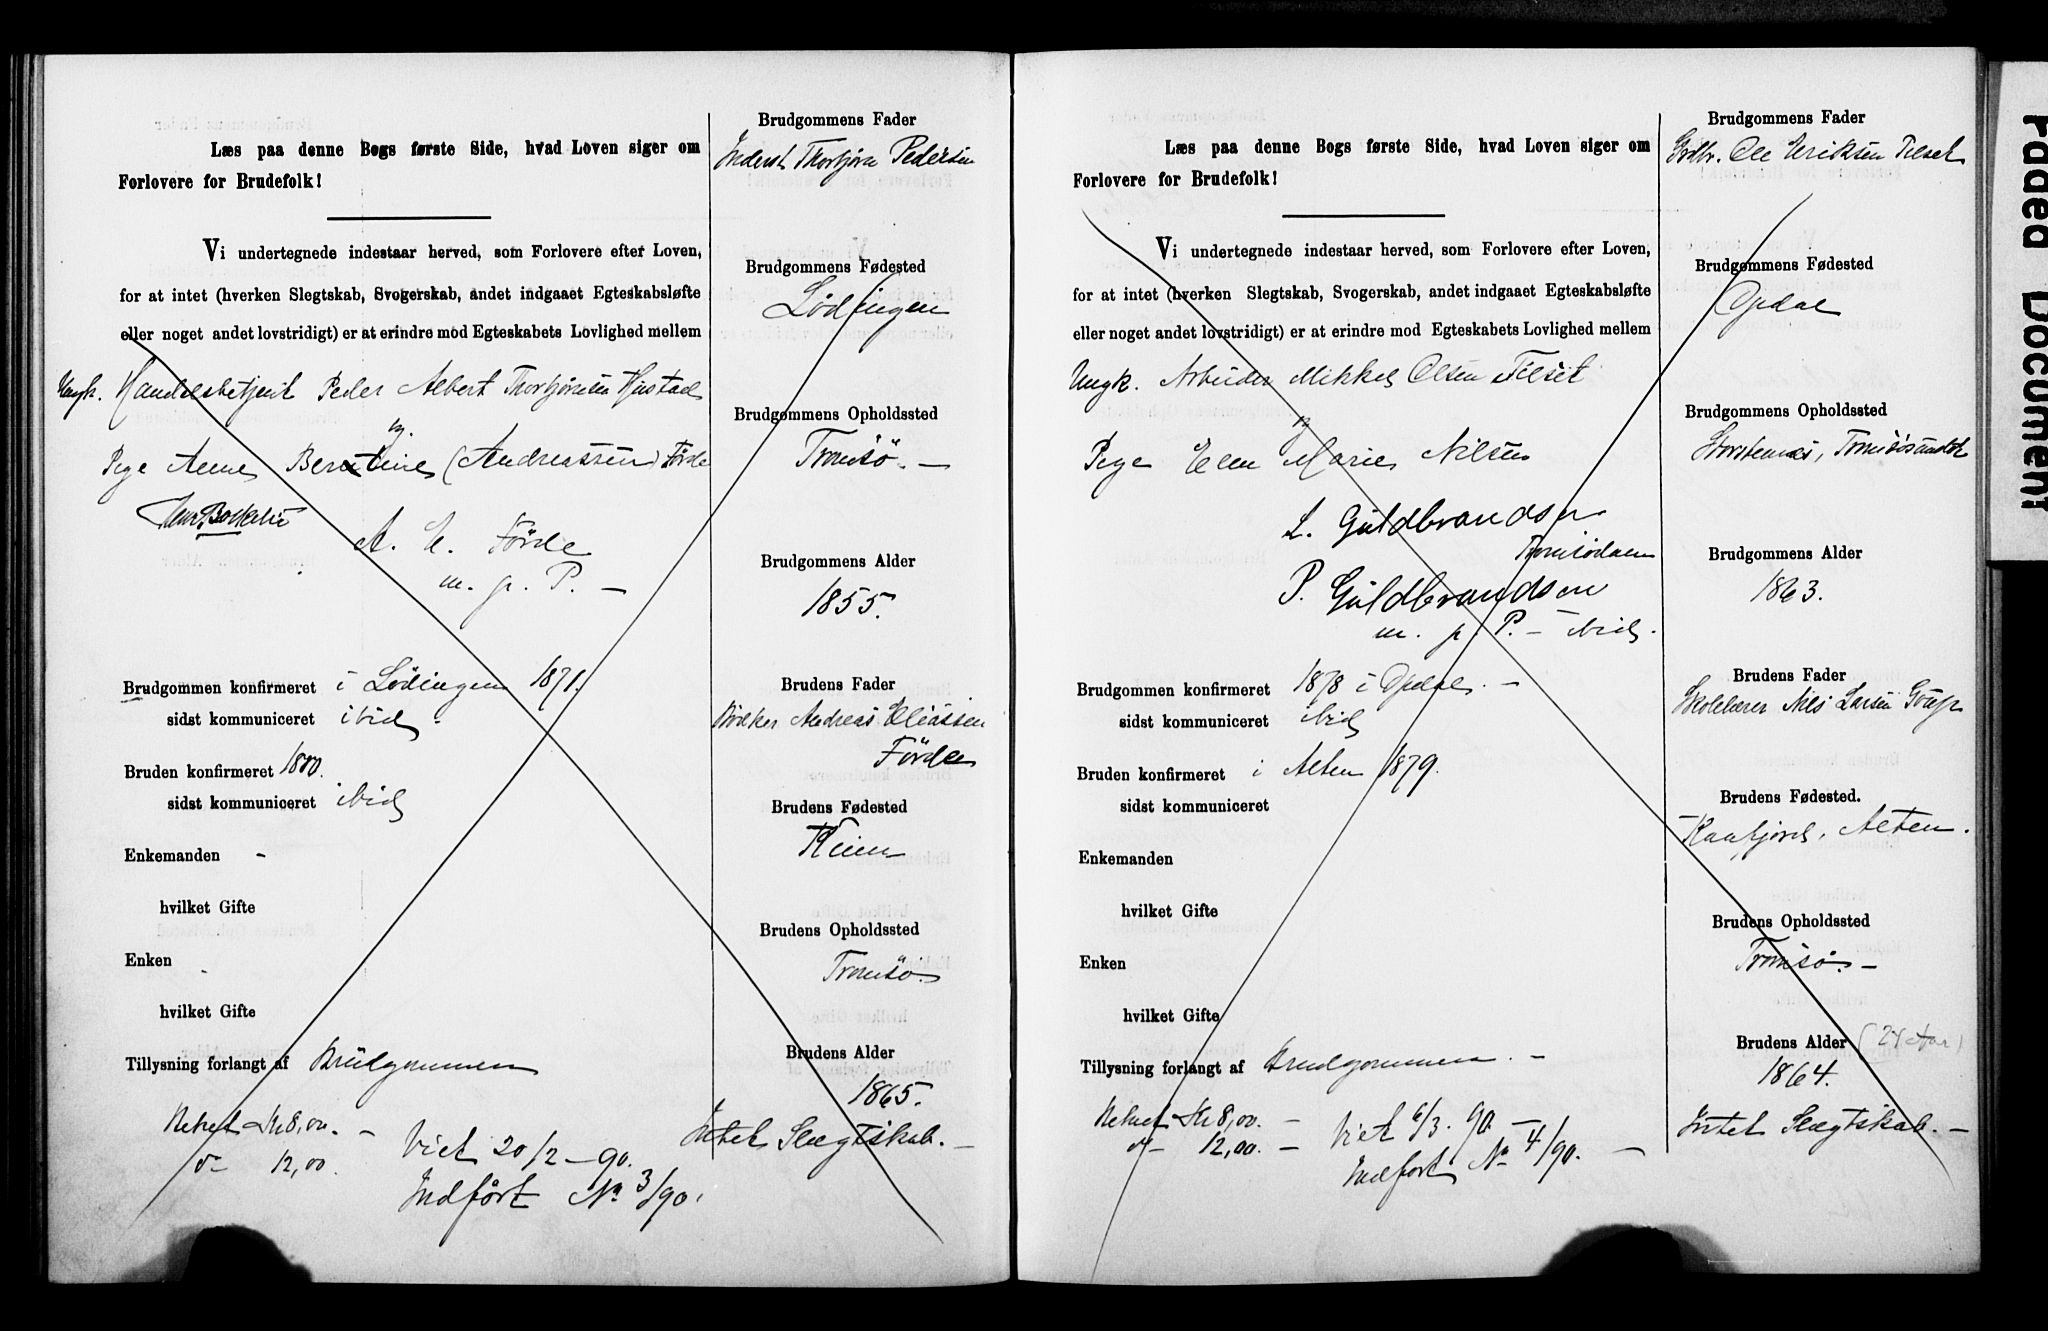 Læs paa denne Bogs første Side, hvad Loven siger om
Forlovere for Brudefolk!
Vi undertegnede indestaar herved, som Forlovere efter Loven,
for at intet (hverken Slegtskab, Svogerskab, andet indgaaet Egteskabsløfte
eller noget andet lovstridigt) er at erindre mod Egteskabets Lovlighed mellem
Ungk. Handelsbetjent Peder Albert Thorbjörnsen Hustad
og
Pige Anne Berntine (Andreassen) Förde
A. E. Förde
m. p. P. —
Brudgommen konfirmeret i Lödingen 1871.
sidst kommuniceret ibid.
Bruden konfirmeret 1880.
sidst kommuniceret ibid
Enkemanden -
hvilket Gifte
Enken -
hvilket Gifte
Tillysning forlangt af Brudgommen
Betalt Kr 8,00. —
do 12,00.
Viet 20/2 - 90.
Indført No 3/90.
Brudgommens Fader
Inderst Thorbjörn Pedersen
Brudgommens Fødested
Lödingen
Brudgommens Opholdssted
Tromsö. —
Brudgommens Alder
1855.
Brudens Fader
Andreas Eliassen
Förde
Brudens Fødested
Brudens Opholdssted
Tromsö.
Brudens Alder
1865.
Intet Slægtskab. —
Læs paa denne Bogs første Side, hvad Loven siger om
Forlovere for Brudefolk!
Vi undertegnede indestaar herved, som Forlovere efter Loven,
for at intet (hverken Slegtskab, Svogerskab, andet indgaaet Egteskabsløfte
eller noget andet lovstridigt) er at erindre mod Egteskabets Lovlighed mellem
Ungk. Arbeider Mikkel Olsen Filset
og
Pige Elen Marie Nilsen
L. Guldbrandsen
Tromsödalen
P. Guldbrandsen
m. p. P. — ibid.
Brudgommen konfirmeret 1878 i Opdal. —
sidst kommuniceret ibid
Bruden konfirmeret i Alten 1879.
sidst kommuniceret
Enkemanden
hvilket Gifte
Enken
hvilket Gifte
Tillysning forlangt af Brudgommen. —
Betalt Kr 8,00. —
do 12,00. —
Viet 6/3. 90. —
Indført No 4/90. —
Brudgommens Fader
Grdbr. Ole Eriksen Filset
Brudgommens Fødested
Opdal
Brudgommens Opholdssted
Storstennes, Tromsösundet
Brudgommens Alder
1863.
Brudens Fader
Skolelærer Nils Larsen
Brudens Fødested.
Kaafjord, Alten.
Brudens Opholdssted
Tromsö. —
Brudens Alder (24 Aar)
1864.
Intet Slægtskab. —
Faded Document